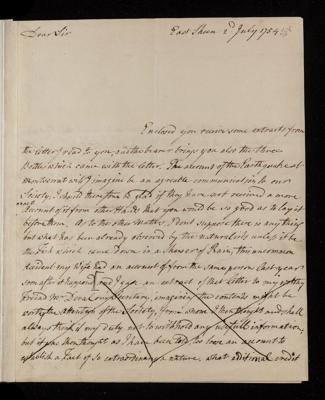 Dear Sir
East Sheen 2d July 1754
Enclosed you receive some extracts from
the letter I read to you, and the bearer brings you also the three
Bottles which came with the letter. The account of the Earthquake at
Montserrat will I imagine be an agreable communication to our
Society, I should therefore be glad if they have not received a more
account of it from other Hands that you would be so good as to lay it
before them. As to the other Matters, I dont suppose there is any thing
but what has been already observed by the naturalists unless it be
the Fish which came down in a Shower of Rain; this uncommon
Accident my Wife had an account of from the same person last year
soon after it happened and I gave an extract of that letter to my worthy
Friend Mr Da Costa
imagining the contents might be
worthy the attention of the Society, from whom I then thought and shall
always think it my duty not to withhold any usefull information;
but it was then thought as I have been told too loose an account to
establish a Fact of so extraordinary a nature, what aditional credit